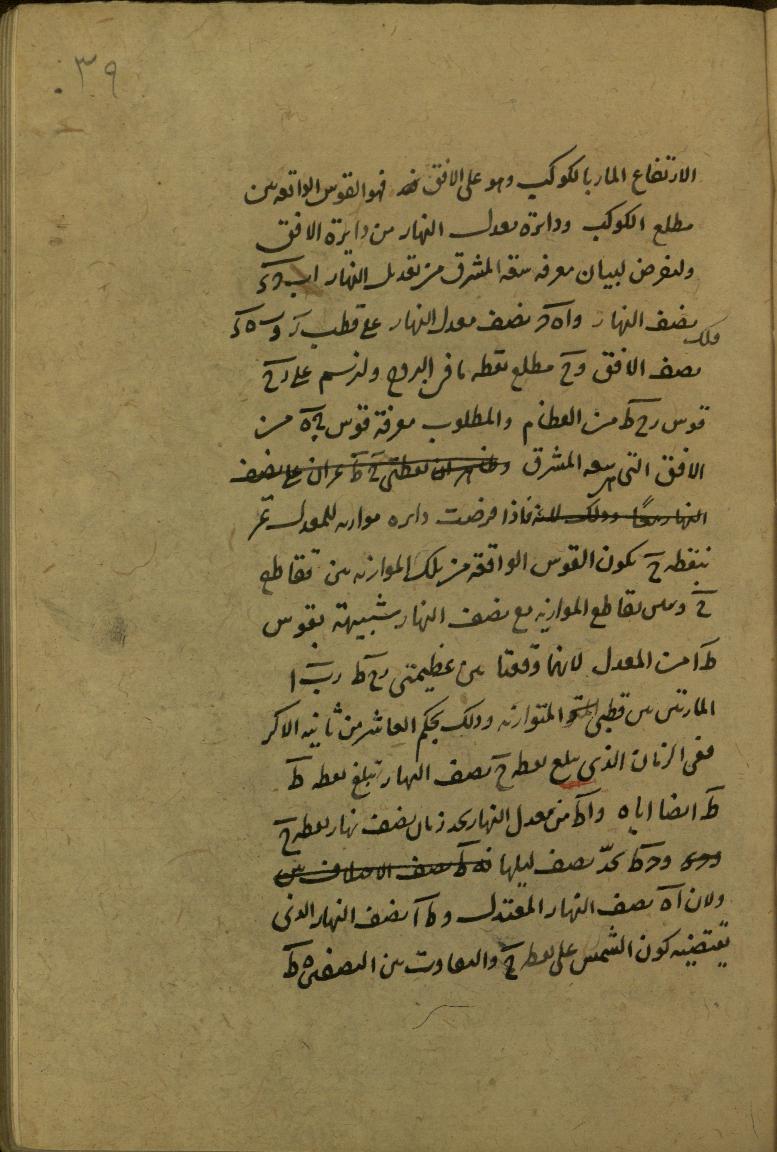 ٣٩
الارتفاع المار بالكوكب وهو على الافق فهو القوس الواقعة بين
مطلع الكوكب ودايرة معدل النهار من دايرة الافق
ولنفرض لبيان معرفه سعه المشرق من تعديل النهار اب ح د
فلك نصف النهار واه ح نصف معدل النهار على قطب ر و ب ه د
نصف الافق وح مطلع نقطه ما من البروج ولنرسم على ر ح
قوس ر ح ط من العظام والمطلوب معرفة قوس ح ه من
الافق التى هى سعه المشرق ولان نقطتى ح ط تمران على نصف
النهار معا وذلك لانه فاذا فرضت دايره موازيه للمعدل تمر
بنقطه ح يكون القوس الواقعة من تلك الموازيه بين تقاطع
ح وبين تقاطع الموازيه مع نصف النهار شبيهة بقوس
ط ا من المعدل لانهما وقعتا بين عظيمتى ر ح ط ر ب ا
المارتين بين قطبى المتوازيه وذلك بحكم العاشر من ثانيه الاكر
ففى الزمان الذى يبلغ نقطه ح نصف النهار تبلغ نقطه ط
ط ايضا اياه و ا ط من معدل النهار يحد زمان نصف نهار نقطه ح
و ح ط يحدّ نصف ليلها
ولان ا ه نصف النهار المعتدل و ط ا نصف النهار الذى
يقتضيه كون الشمس على نقطه ح والتفاوت بين النصفين ه ط